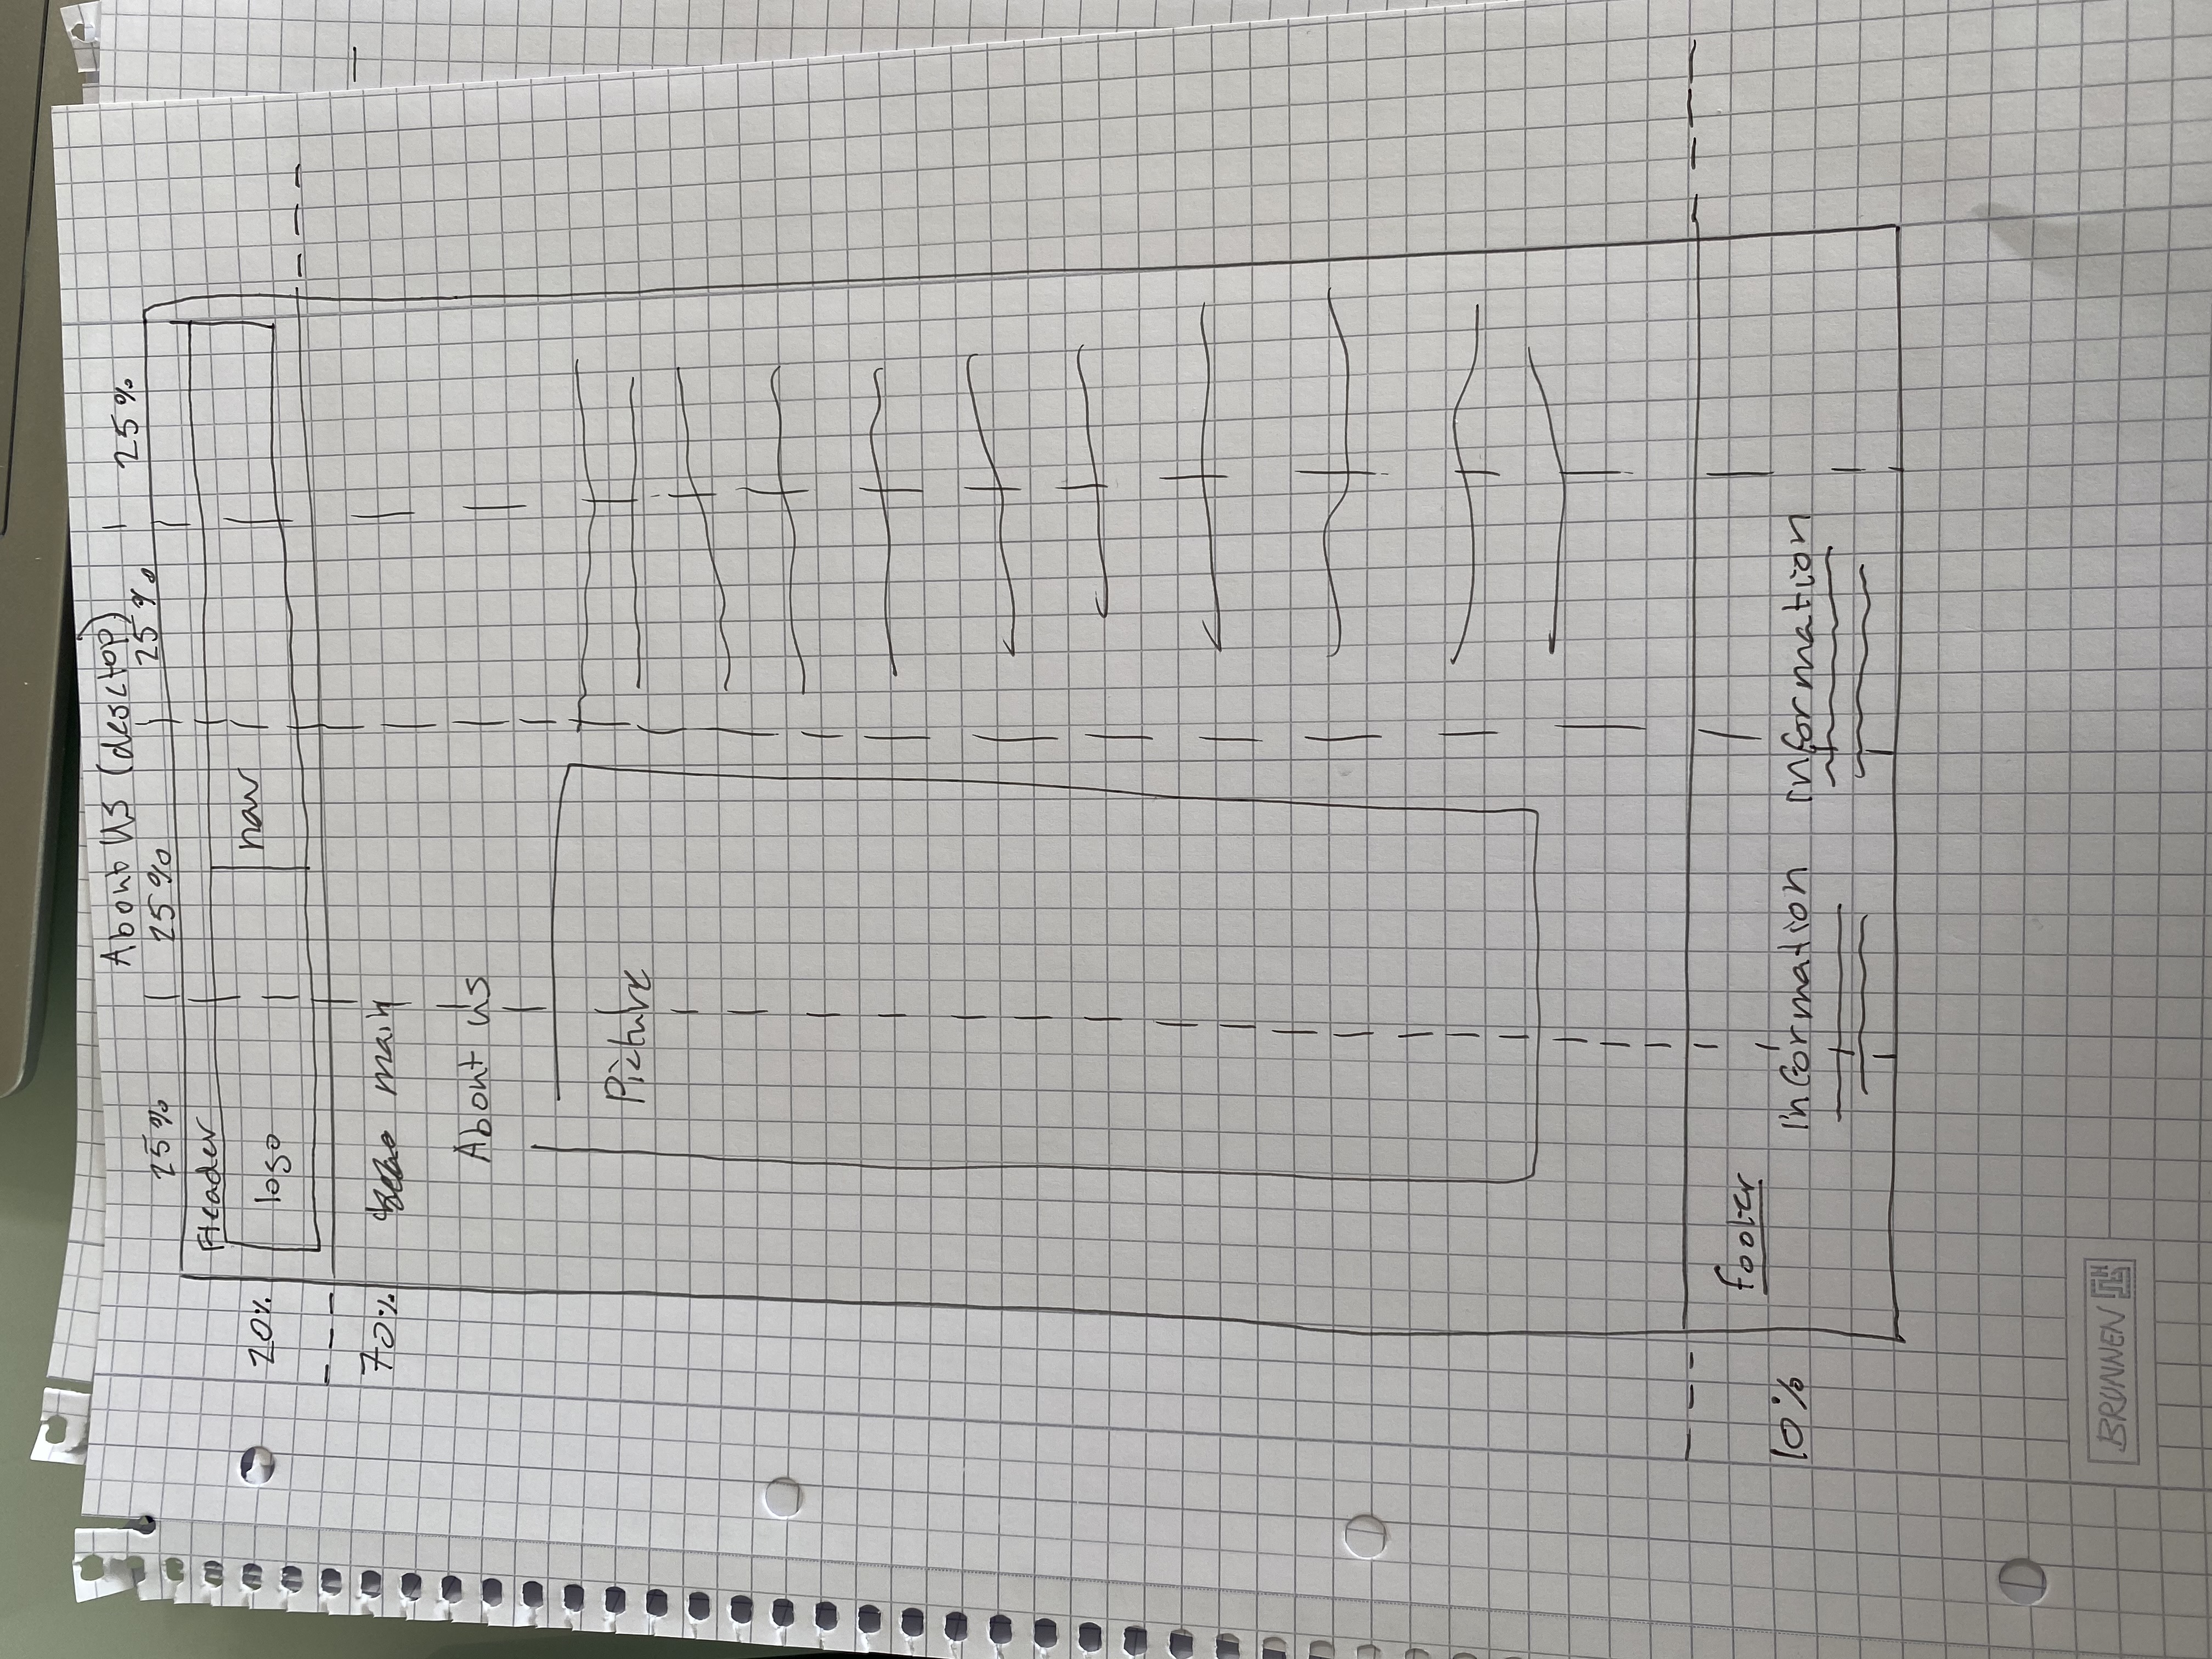 About Us (desctop)
25% 25% 25% 25%
Header
20% logo nav
70% main
About us
Picture
footer
10% information information
BRUNNEN